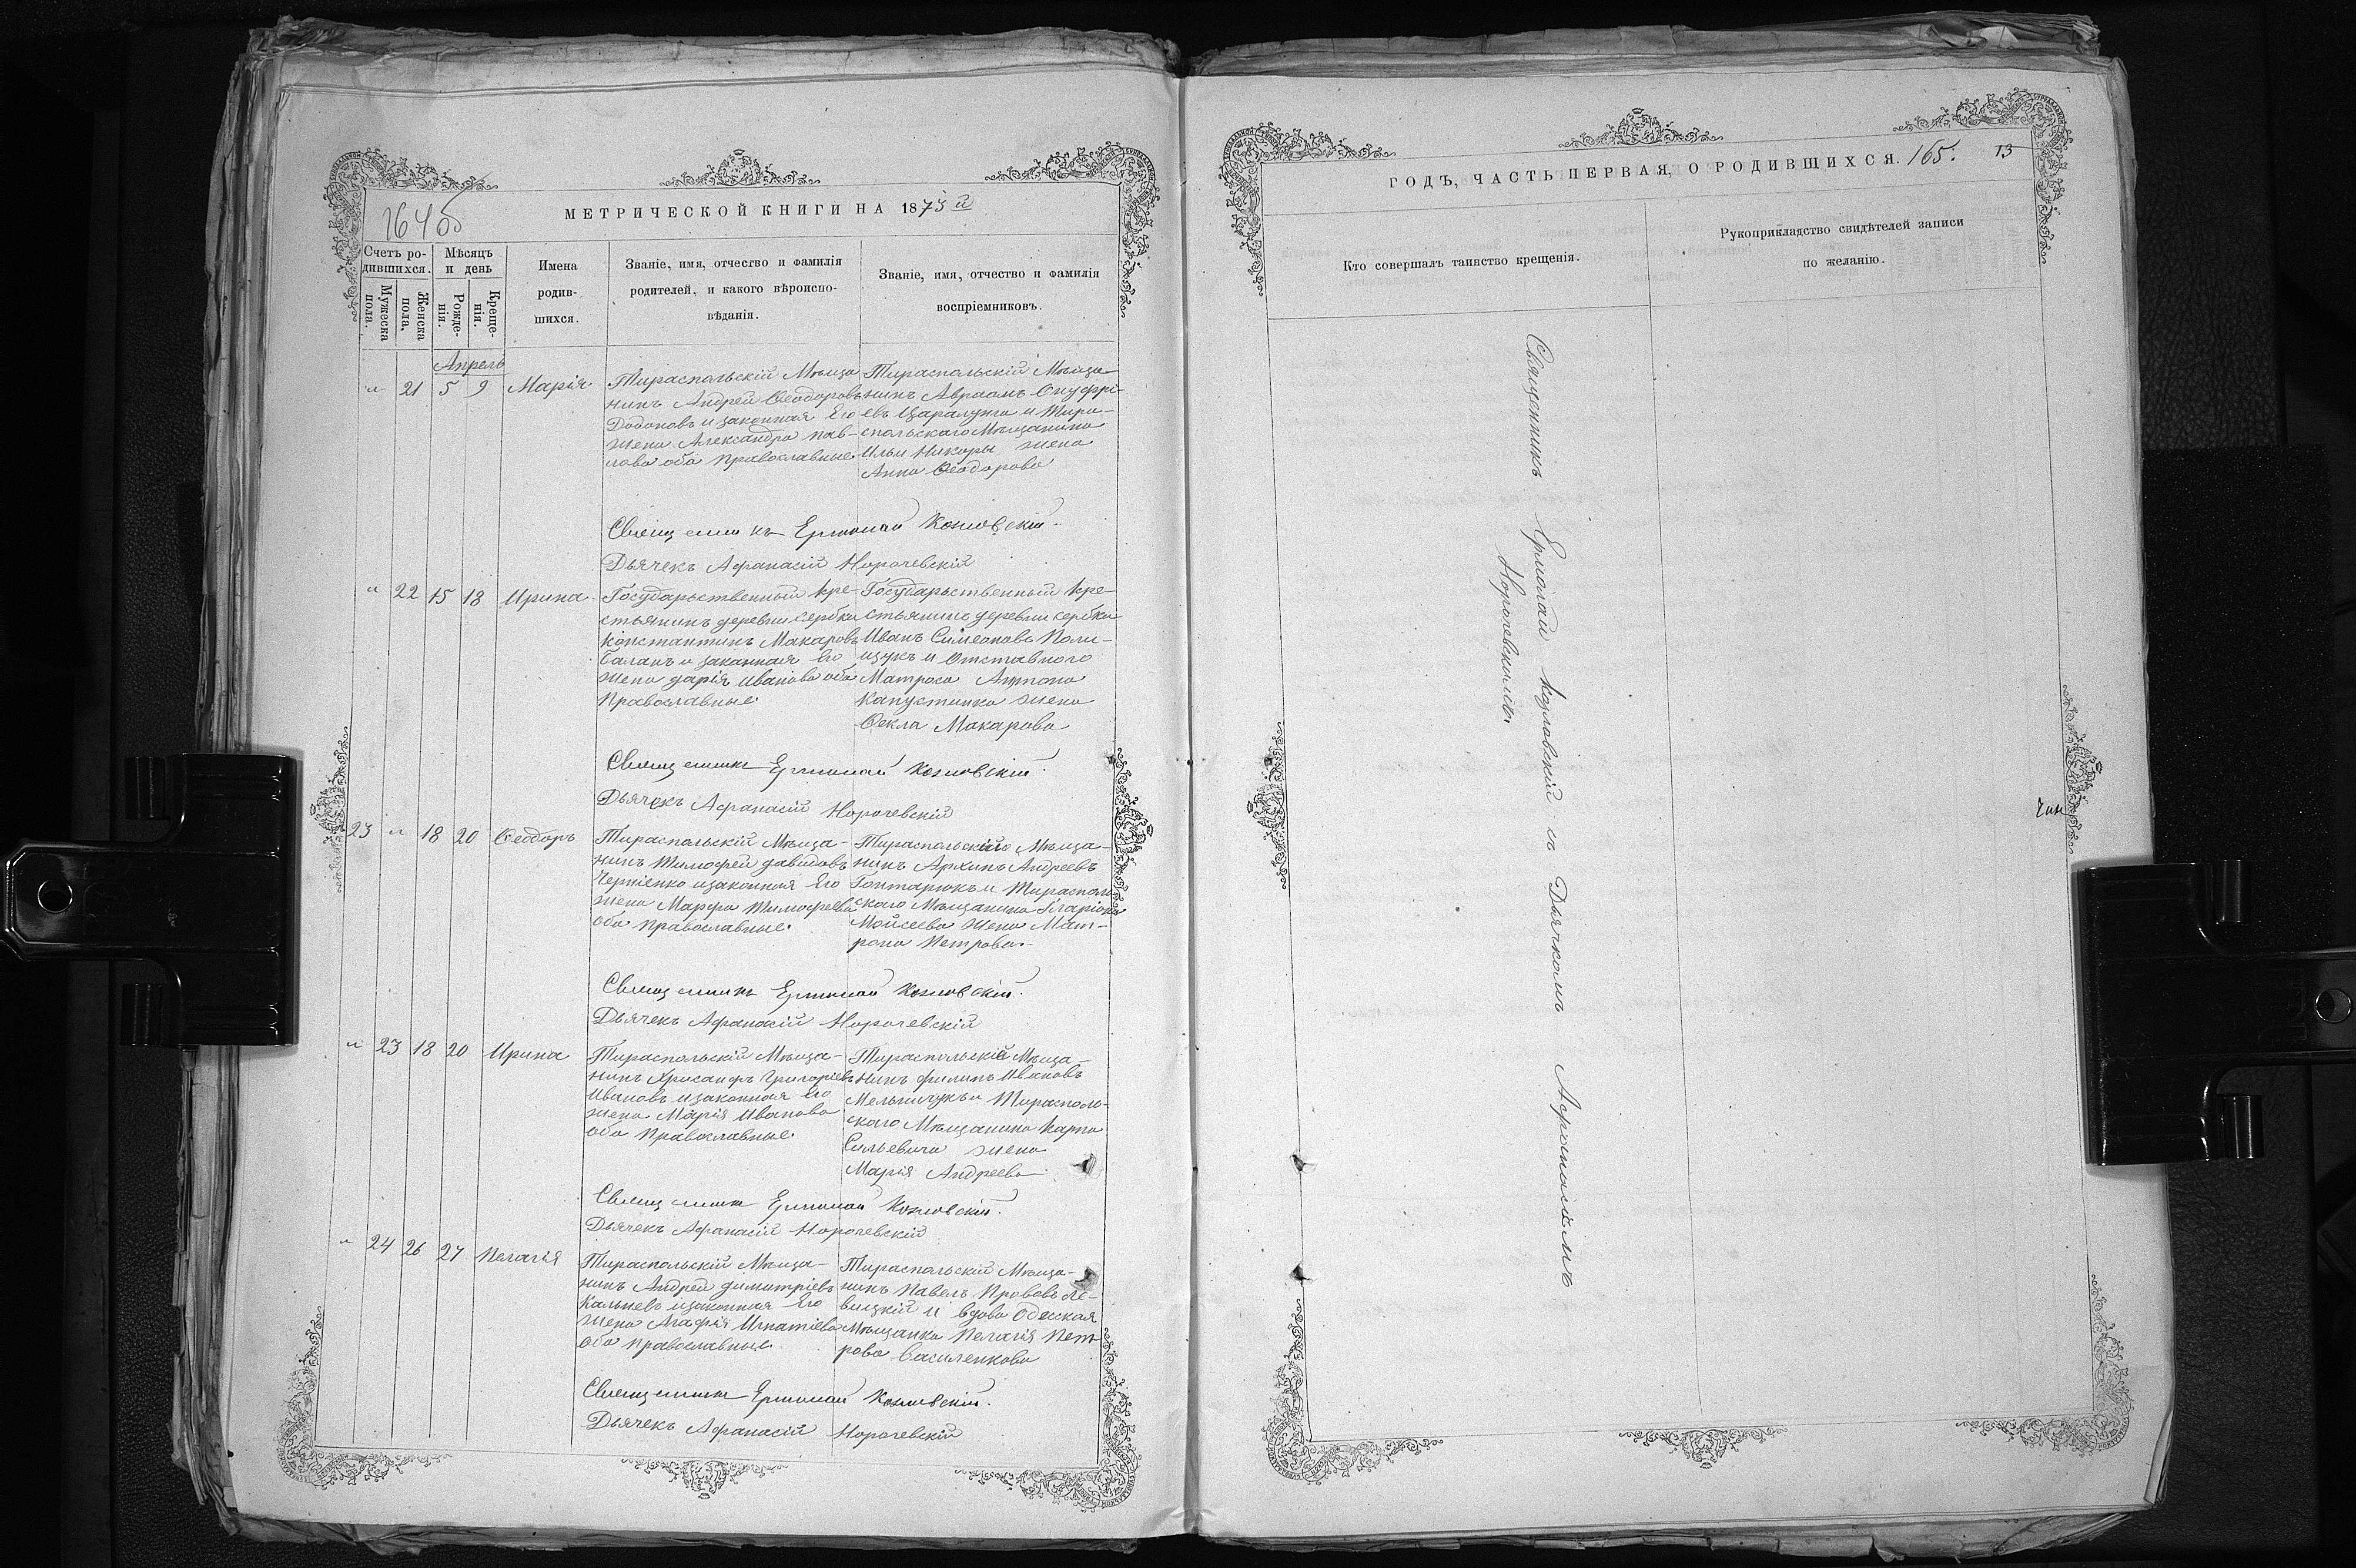 1645
МЕТРИЧЕСКОЙ КНИГИ НА 1873 й
Счетъ ро-
дившихся.
Мужеска
пола.
Женска
пола.
Мѣсяцъ
и день
Рожде-
нія.
Креще-
нія.
Имена
родив-
шихся.
Званіе, имя, отчество и фамилія
родителей, и какого вѣроиспо-
вѣданія.
Званіе, имя, отчество и фамилія
воспріемниковъ.
Апрель
" 21 5 9 Марія
Тираспольскій Мѣща-
нинъ Андрей Ѳеодоровъ
Додоновъ и законная Его
жена Александра Пав-
лова оба Православные
Тираспольскій Мѣща-
нинъ Авраамъ Онуфрі-
евъ Царалунга и Тира-
спольскаго Мѣщанина
Ильи Никоры жена
Анна Ѳеодорова
Священникъ Ермолай Козловскій.
Дьячекъ Афанасій Норочевскій
" 22 15 18 Ирина
Государственный кре-
стьянинъ деревни Сербки
Константинъ Макаровъ
Баланъ и законная Его
жена Дарія Иванова оба
Православные
Государственный кре-
стьянинъ деревни Сербки
Иванъ Симеоновъ Поли-
щукъ и Отставного
Матроса Антона
Капустинка жена
Ѳекла Макарова
Священникъ Ермолай Козловскій.
Дьячекъ Афанасій Норочевскій
23 " 18 20 Ѳеодоръ
Тираспольскій Мѣща-
нинъ Тимофей Давидовъ
Черніенко и законная Его
жена Марфа Тимофеева
оба Православные.
Тираспольскій Мѣща-
нинъ Архипъ Андреевъ
Гонтарюкъ и Тирасполь-
скаго Мѣщанина Иларіона
Мойсеева жена Мат-
рона Петрова.
Священникъ Ермолай Козловскій.
Дьячекъ Афанасій Норочевскій
" 23 18 20 Ирина
Тираспольскій Мѣща-
нинъ Хрисанфъ Григоріевъ
Ивановъ и законная Его
жена Марія Иванова
оба Православные.
Тираспольскій Мѣща-
нинъ Филипъ Ивановъ
Мельничукъ и Тирасполь-
скаго Мѣщанина Карпа
Сильевича жена
Марія Андреева
Священникъ Ермолай Козловскій.
Дьячекъ Афанасій Норочевскій
" 24 26 27 Пелагія
Тираспольскій Мѣща-
нинъ Андрей Димитріевъ
Кальневъ и законная Его
жена Агафія Игнатіева
оба Православные.
Тираспольскій Мѣща-
нинъ Павелъ Прововъ Ле-
вицкій и вдова Одесская
Мѣщанка Пелагія Пет-
рова Василенкова
Священникъ Ермолай Козловскій.
Дьячекъ Афанасій Норочевскій
ГОДЪ, ЧАСТЬ ПЕРВАЯ, О РОДИВШИХСЯ. 165. 13
Кто совершалъ таинство крещенія.
Рукоприкладство свидѣтелей записи
по желанію.
Священникъ Ермолай Козловскій съ Дьячкомъ Афанасіемъ
Норочевскимъ.